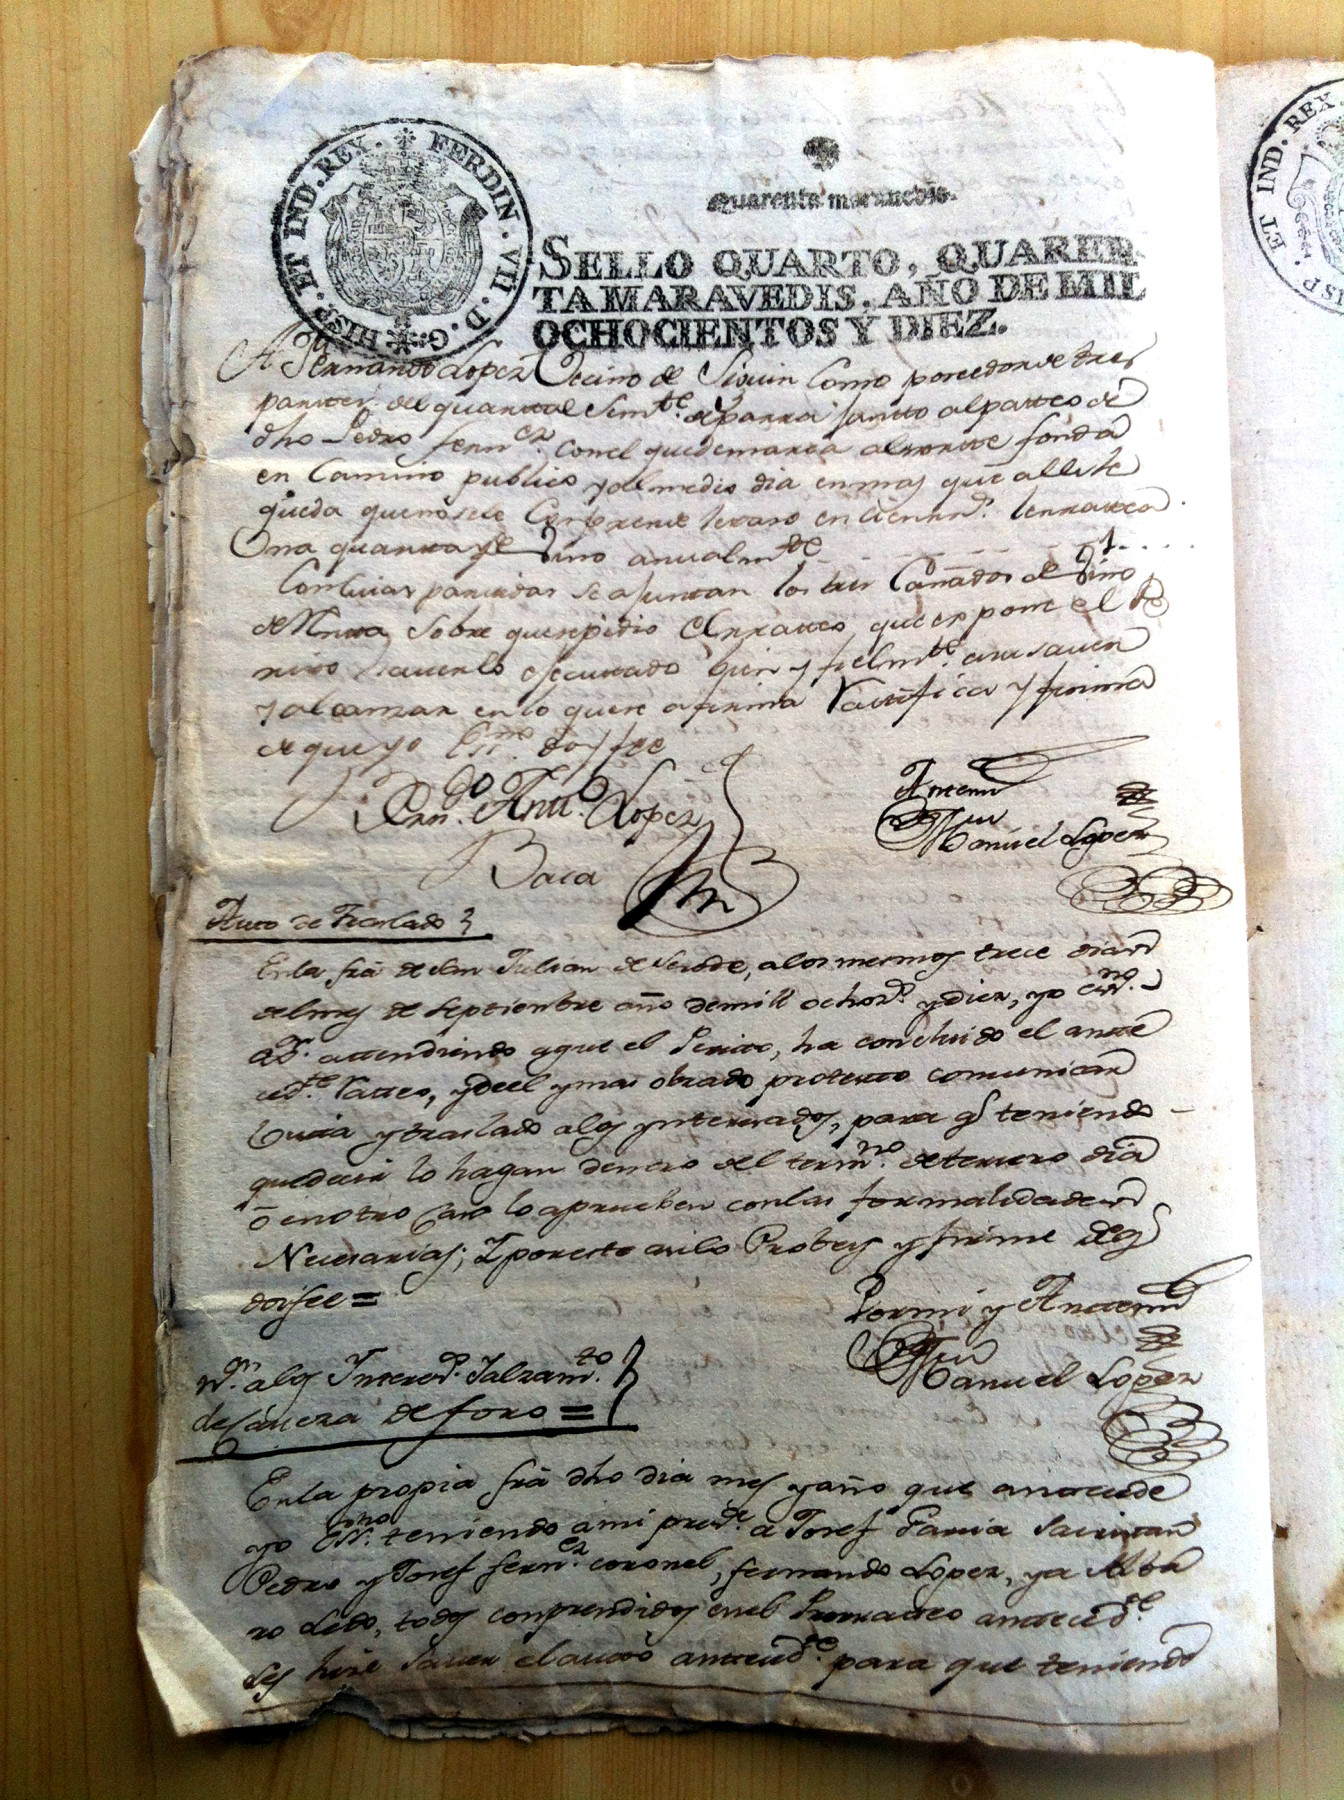 HISP. ET IND. REX. * FERDIN. VII. D. G.
Quarenta maravedis.
SELLO QUARTO, QUAREN-
TA MARAVEDIS, AÑO DE MIL
OCHOCIENTOS Y DIEZ.
A Fernando Lopez Vecino de Como poseedor de tres
partes del quartal Semte. de parra junto al parteo de
dho Pedro Fernez. con el que demarca al norte fonda
en Camino publico y al medio dia en mas que alli le
queda
Una quarta de Vino anualmte. 1.
Con cuias partidas se ajuntan los tres Cañados de Vino
de Renta sobre que se pidio el Prratteo que expone el Pe
rito haverlo efectuado bien y fielmte. a su saver
y alcanzar en lo que se afirma Ratifica y firma
de que yo Essno. doy fee
Ferndo. Antto. Lopez
Baca
Antemi
Manuel Lopez
Auto de Traslado
En la fra de San Julian de Serode, a los mesmos trece dias
del mes de Septiembre año de mill ochozs. y diez, yo essno.
attendiendo a que el Perito, ha concluido el ante
cedte. Ratteo, y de el y mas obrado protexto comunicar
Vista y traslado a los ynteresados, para qe teniendo
que decir lo hagan dentro del termno. de tercero dia
ó en otro caso lo aprueben con las formalidades
Necesarias; Y por este asi lo Probey y firme de q
doi fee =
Por mi y Antemi
Manuel Lopez
Nn. a los Interesds. Jalzamto.
de Caveza de foro =
En la propia fra dho dia mes y año que antecede
yo Essno. teniendo a mi preste. a Josef Garcia Sacristan
Pedro y Josef Fernez. coronel, Fernando Lopez, y a Alba
ro Ledo, todos conprendidos en el Prorratteo anttecedte.
Les hise Saver el autto antecedte. para que teniendo
ET IND. REX
HISP.